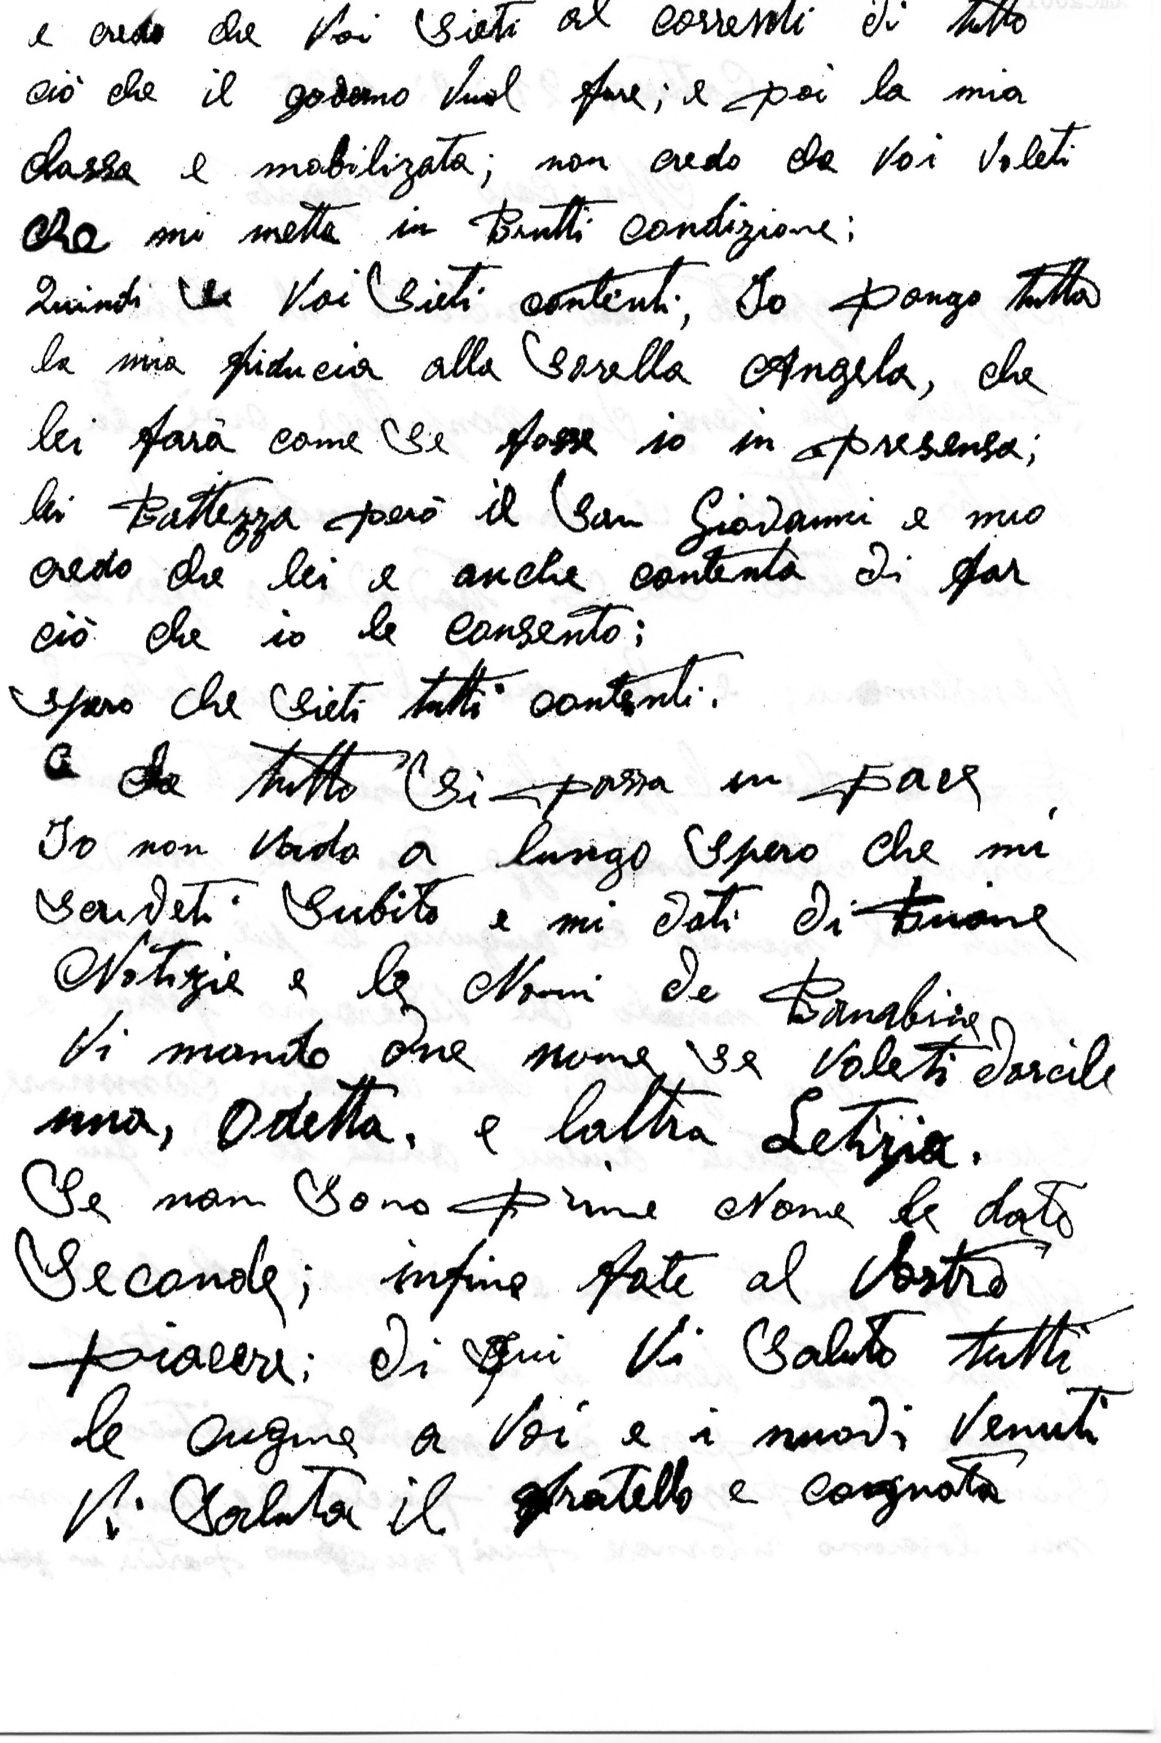 e credo che Voi Sieti al correnti di tutto
ciò che il governo Vuol fare; e poi la mia
classa e mobilizata; non credo che Voi Voleti
che mi metta in Brutti condizione;
Quindi se Voi Sieti contenti, Io pongo tutta
la mia fiducia alla Sorella Angela, che
lei farà come Se fosse io in presensa;
lei Battezza però il San Giovanni e mio
credo che lei e anche contenta di far
ciò che io le consento;
Spero che Sieti tutti contenti.
e che tutto Si passa in pace
Io non Vado a lungo Spero che mi
Scriveti Subito e mi dati di Buone
Notizie e le Nomi de Bambine
Vi mando due nome Se Voleti darcile
una, Odetta. e laltra Letizia.
Se non Sono prime Nome le dato
Seconde; infine fate al Vostro
piacere; di qui Vi Saluto tutti
le cugine a Voi e i nuovi Venuti
Vi Saluta il fratello e cognata